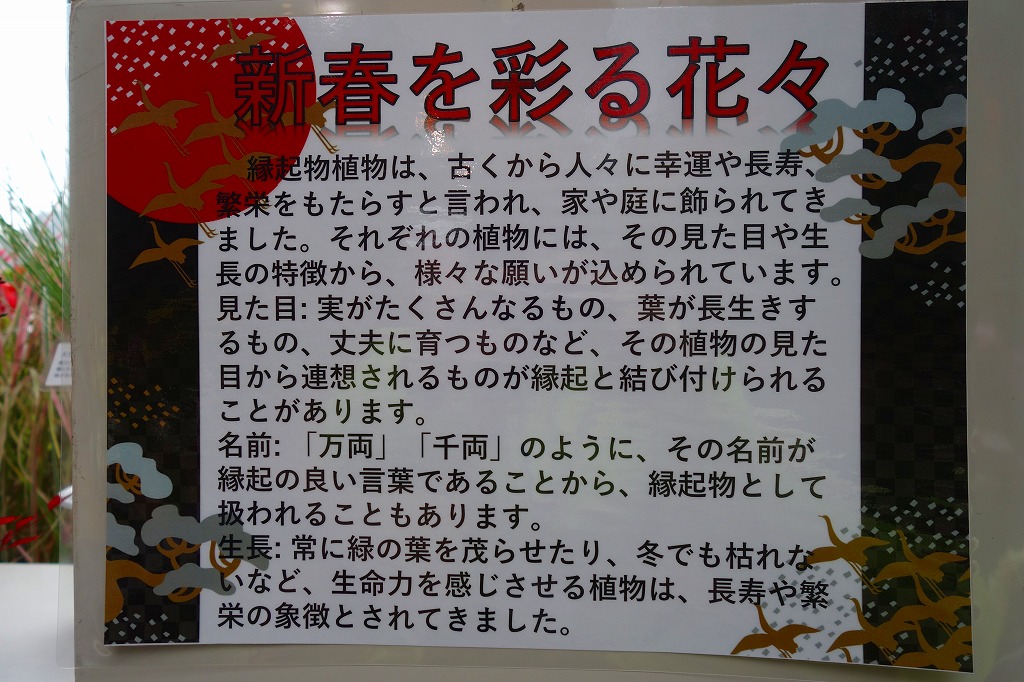 新春を彩る花々
縁起物植物は、古くから人々に幸運や長寿、
繁栄をもたらすと言われ、家や庭に飾られてき
ました。それぞれの植物には、その見た目や生
長の特徴から、様々な願いが込められています。
見た目: 実がたくさんなるもの、葉が長生きす
るもの、丈夫に育つものなど、その植物の見た
目から連想されるものが縁起と結び付けられる
ことがあります。
名前: 「万両」「千両」のように、その名前が
縁起の良い言葉であることから、縁起物として
扱われることもあります。
生長: 常に緑の葉を茂らせたり、冬でも枯れな
いなど、生命力を感じさせる植物は、長寿や繁
栄の象徴とされてきました。